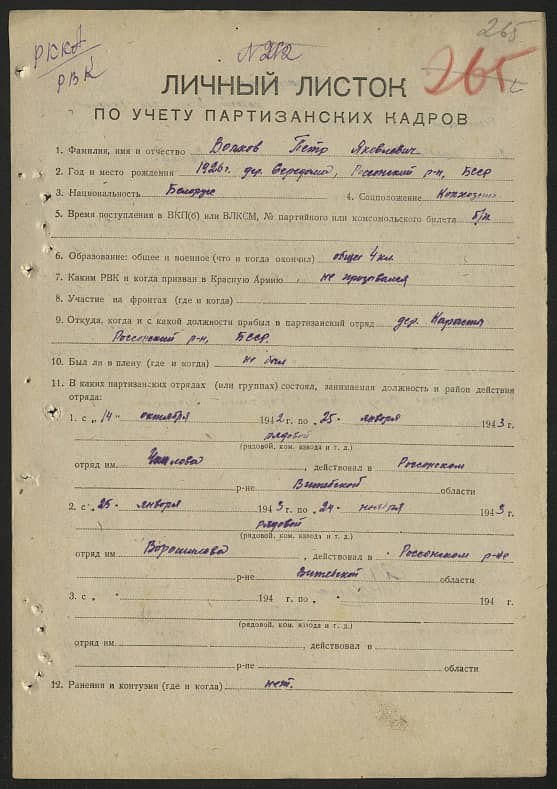 265
РККА
РВК
N 262
265
ЛИЧНЫЙ ЛИСТОК
ПО УЧЕТУ ПАРТИЗАНСКИХ КАДРОВ
1. Фамилия, имя и отчество Волков Петр Яковлевич
2. Год и место рождения 1926 г. дер. Россонский р-н, БССР
3. Национальность Белорус 4. Соцположение Колхозник
5. Время поступления в ВКП(б) или ВЛКСМ, № партийного или комсомольского билета б/п
6. Образование: общее и военное (что и когда окончил) общее 4 кл.
7. Каким РВК и когда призван в Красную Армию не призывался
8. Участие на фронтах (где и когда)
9. Откуда, когда и с какой должности прибыл в партизанский отряд дер.
Россонский р-н, БССР
10. Был ли в плену (где и когда) не был
11. В каких партизанских отрядах (или группах) состоял, занимаемая должность и район действия
отряда:
1. с „14" октября 1942 г. по „25" января 1943 г.
рядовой
(рядовой, ком. взвода и т. д.)
отряд им. Чкалова, действовал в Россонском
р-не Витебской области
2. с „25" января 1943 г. по „24" ноября 1943 г.
рядовой
(рядовой, ком. взвода и т. д.)
отряд им. Ворошилова, действовал в Россонском р-не
р-не Витебской области
3. с „ " 194 г. по „ " 194 г.
(рядовой, ком. взвода и т. д.)
отряд им. , действовал в
р-не области
12. Ранения и контузии (где и когда) нет.